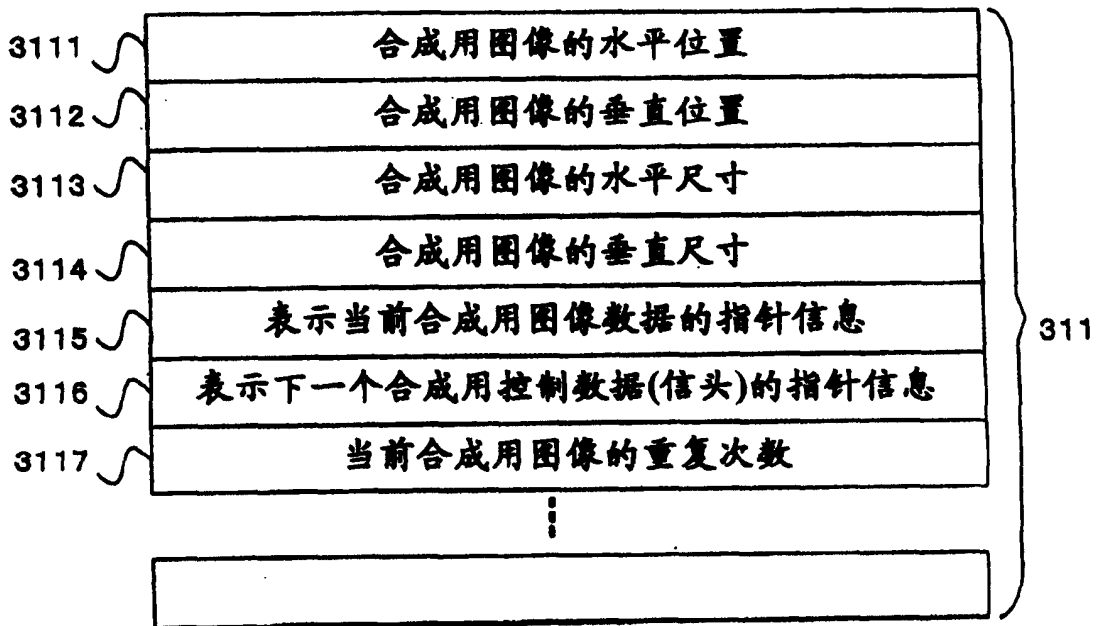 3111 合成用图像的水平位置
3112 合成用图像的垂直位置
3113 合成用图像的水平尺寸
3114 合成用图像的垂直尺寸
3115 表示当前合成用图像数据的指针信息
311
3116 表示下一个合成用控制数据(信头)的指针信息
3117 当前合成用图像的重复次数